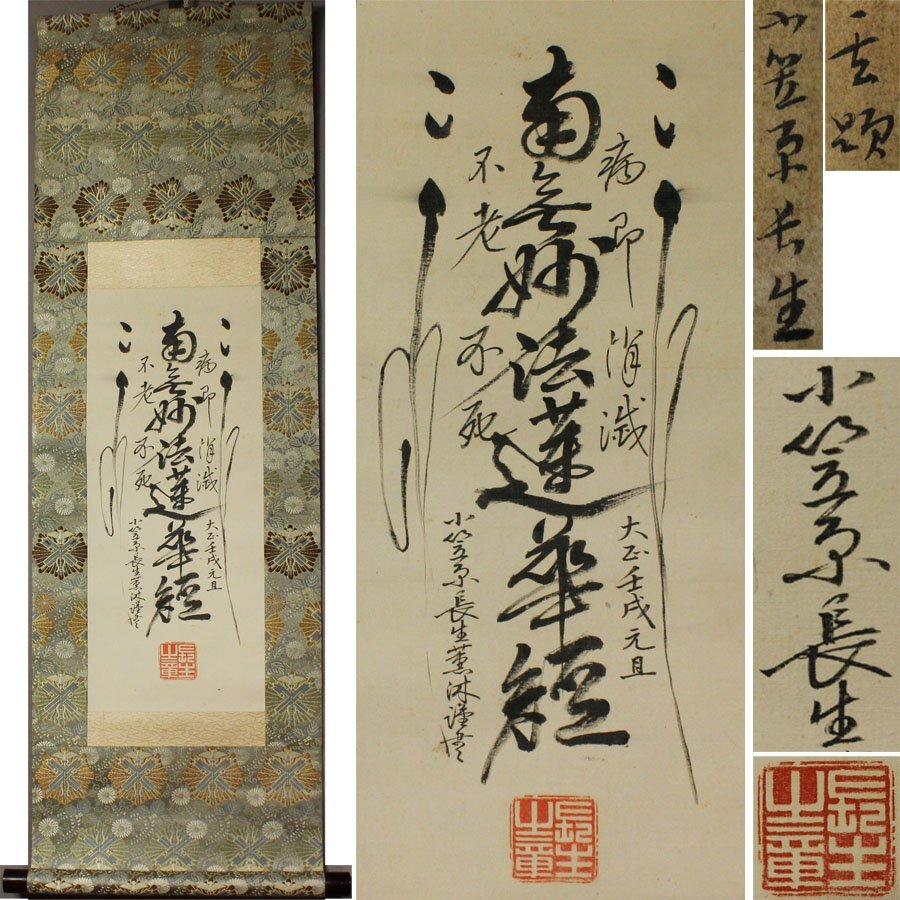 南無妙法蓮華経
病即消滅
不老不死
大正壬戌元旦
小笠原長生薫沐謹書
長生之章
南無妙法蓮華経
病即消滅
不老不死
大正壬戌元旦
小笠原長生薫沐謹書
長生之章
題
小笠原長生
小笠原長生
長生之章